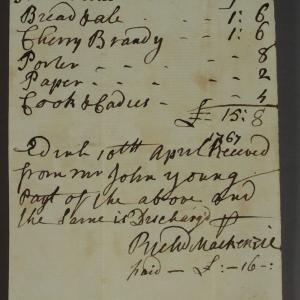 Bread & ale - - 1: 6
Cherry Brandy - 1: 6
Porter - - - 8
Paper - - - 2
Cook & Cadies - 4
£ 15: 8
Edinb 10th April 1767 Received
from mr John Young
Part of the above and
the Same is Discharged
Richd Mackenzie
paid — £ : — 16 — :